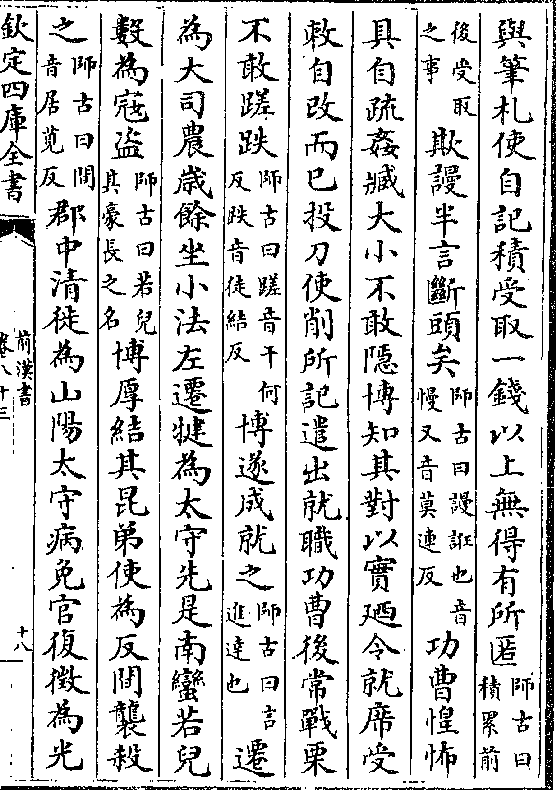 與筆札使自記積受取一錢以上無得有所匿師古曰積累前
後受取之事欺謾半言斷頭矣師古曰謾誑也音慢又音莫連反功曹惶怖
具自疏姦臧大小不敢隱博知其對以實廼令就席受
敕自改而已投刀使削所記遣出就職功曹後常戰栗
不敢蹉跌師古曰蹉音千何反跌音徒結反博遂成就之師古曰言進達也遷
為大司農歲餘坐小法左遷犍為太守先是南蠻若兒
數為寇盜師古曰若兒其豪長之名博厚結其昆弟使為反間襲殺
之師古曰間音居莧反郡中清徙為山陽太守病免官復徵為光
欽定四庫全書
前漢書
卷八十三
十八